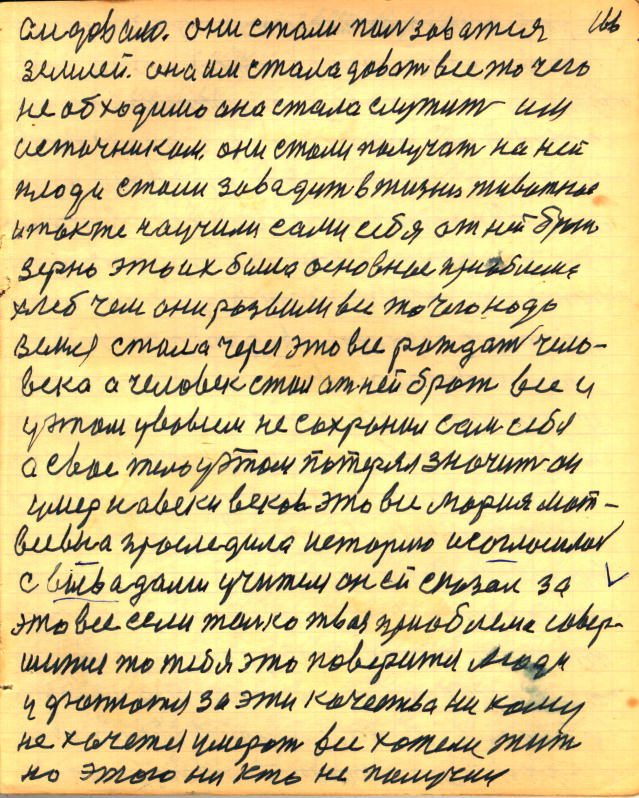 следовало. они стали ползоватся 166
землей. она им стала доват все то чего
не обходимо она стала служит им
источником. они стали получат на ней
плоди стали заводит в жизни животное
и также научили сами себя от ней брат
зерно это их била основное приоблема
хлеб чем они розвили все то чего нодо
земля стала через это все рождат чело-
века а человек стал от ней брот все и
у этом увовсем не сохронил сам себя
а свое тело у этом потерял значит он
умер на веки веков это все Мария Мат-
веевна проследила историю и согласилас
с виводами учителя он ей сказал за
это все если толко твоя приоблема совер-
шится то тебя это поверится люди
и за эти качества ни кому
не хочется умерат все хотели жит
но этого ни кто не получил